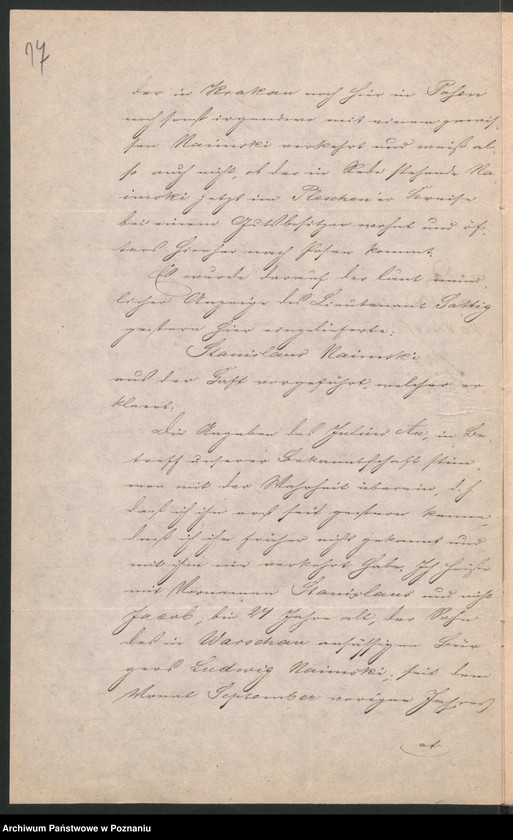 17
der in Krakau noch hier in Posen
noch sonst irgendwo mit einem gewis-
sen Naimski verkehrt und weiß al-
so auch nicht, ob der in Rede stehende Na-
imski jetzt im Pleschen'er Kreise
bei einem Gutsbesitzer wohnt und öf-
ters hierher nach Posen kommt.
Es wurde darauf der laut münd-
licher Anzeige des Lieutenant
gestern hier eingelieferte:
Stanislaus Naimski
aus der Haft vorgeführt, welcher er-
klaert:
Die Angaben des Julius Au, in Be-
treff unserer Bekanntschaft stim-
men mit der Wahrheit überein, d. h.
daß ich ihn erst seit gestern kenne,
daß ich ihn früher nicht gekannt und
mit ihm nie verkehrt habe. Ich heiße
mit Vornamen Stanislaus und nicht
Jacob, bin 24 Jahre alt, der Sohn
des in Warschau ansässigen Bür-
gers Ludwig Naimski; seit dem
Monat September vorigen Jahres
Archiwum Państwowe w Poznaniu